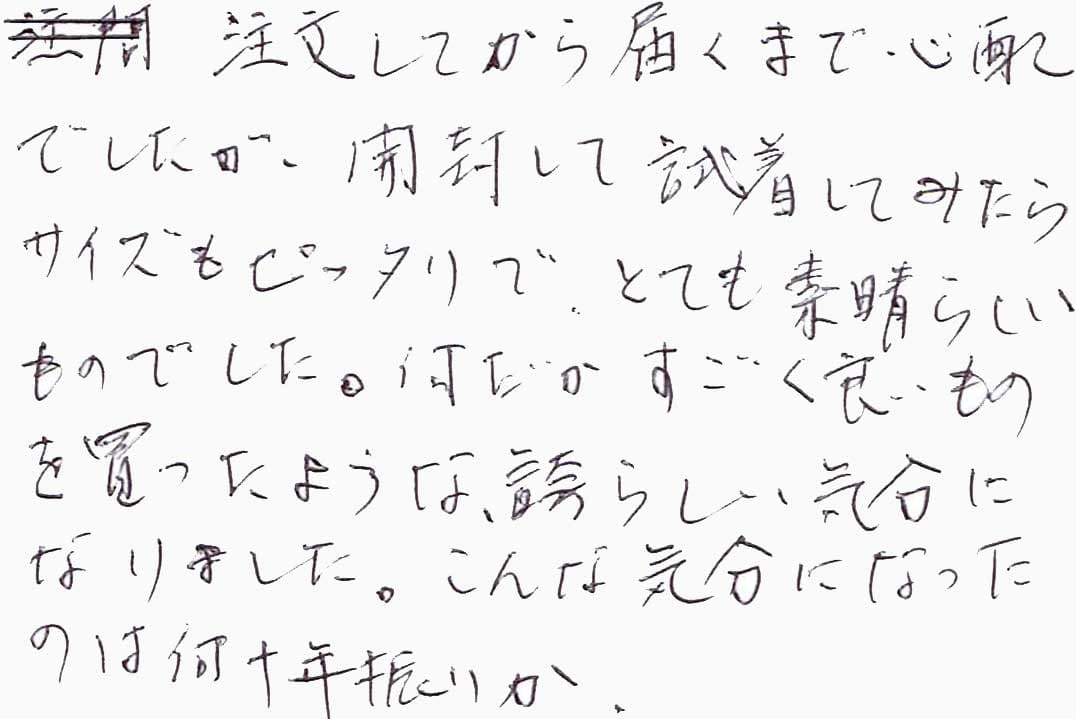 注文してから届くまで心配
でしたが、開封して試着してみたら
サイズもピッタリで、とても素晴らしい
ものでした。何だかすごく良いもの
を買ったような、誇らしい気分に
なりました。こんな気分になった
のは何十年振りか、